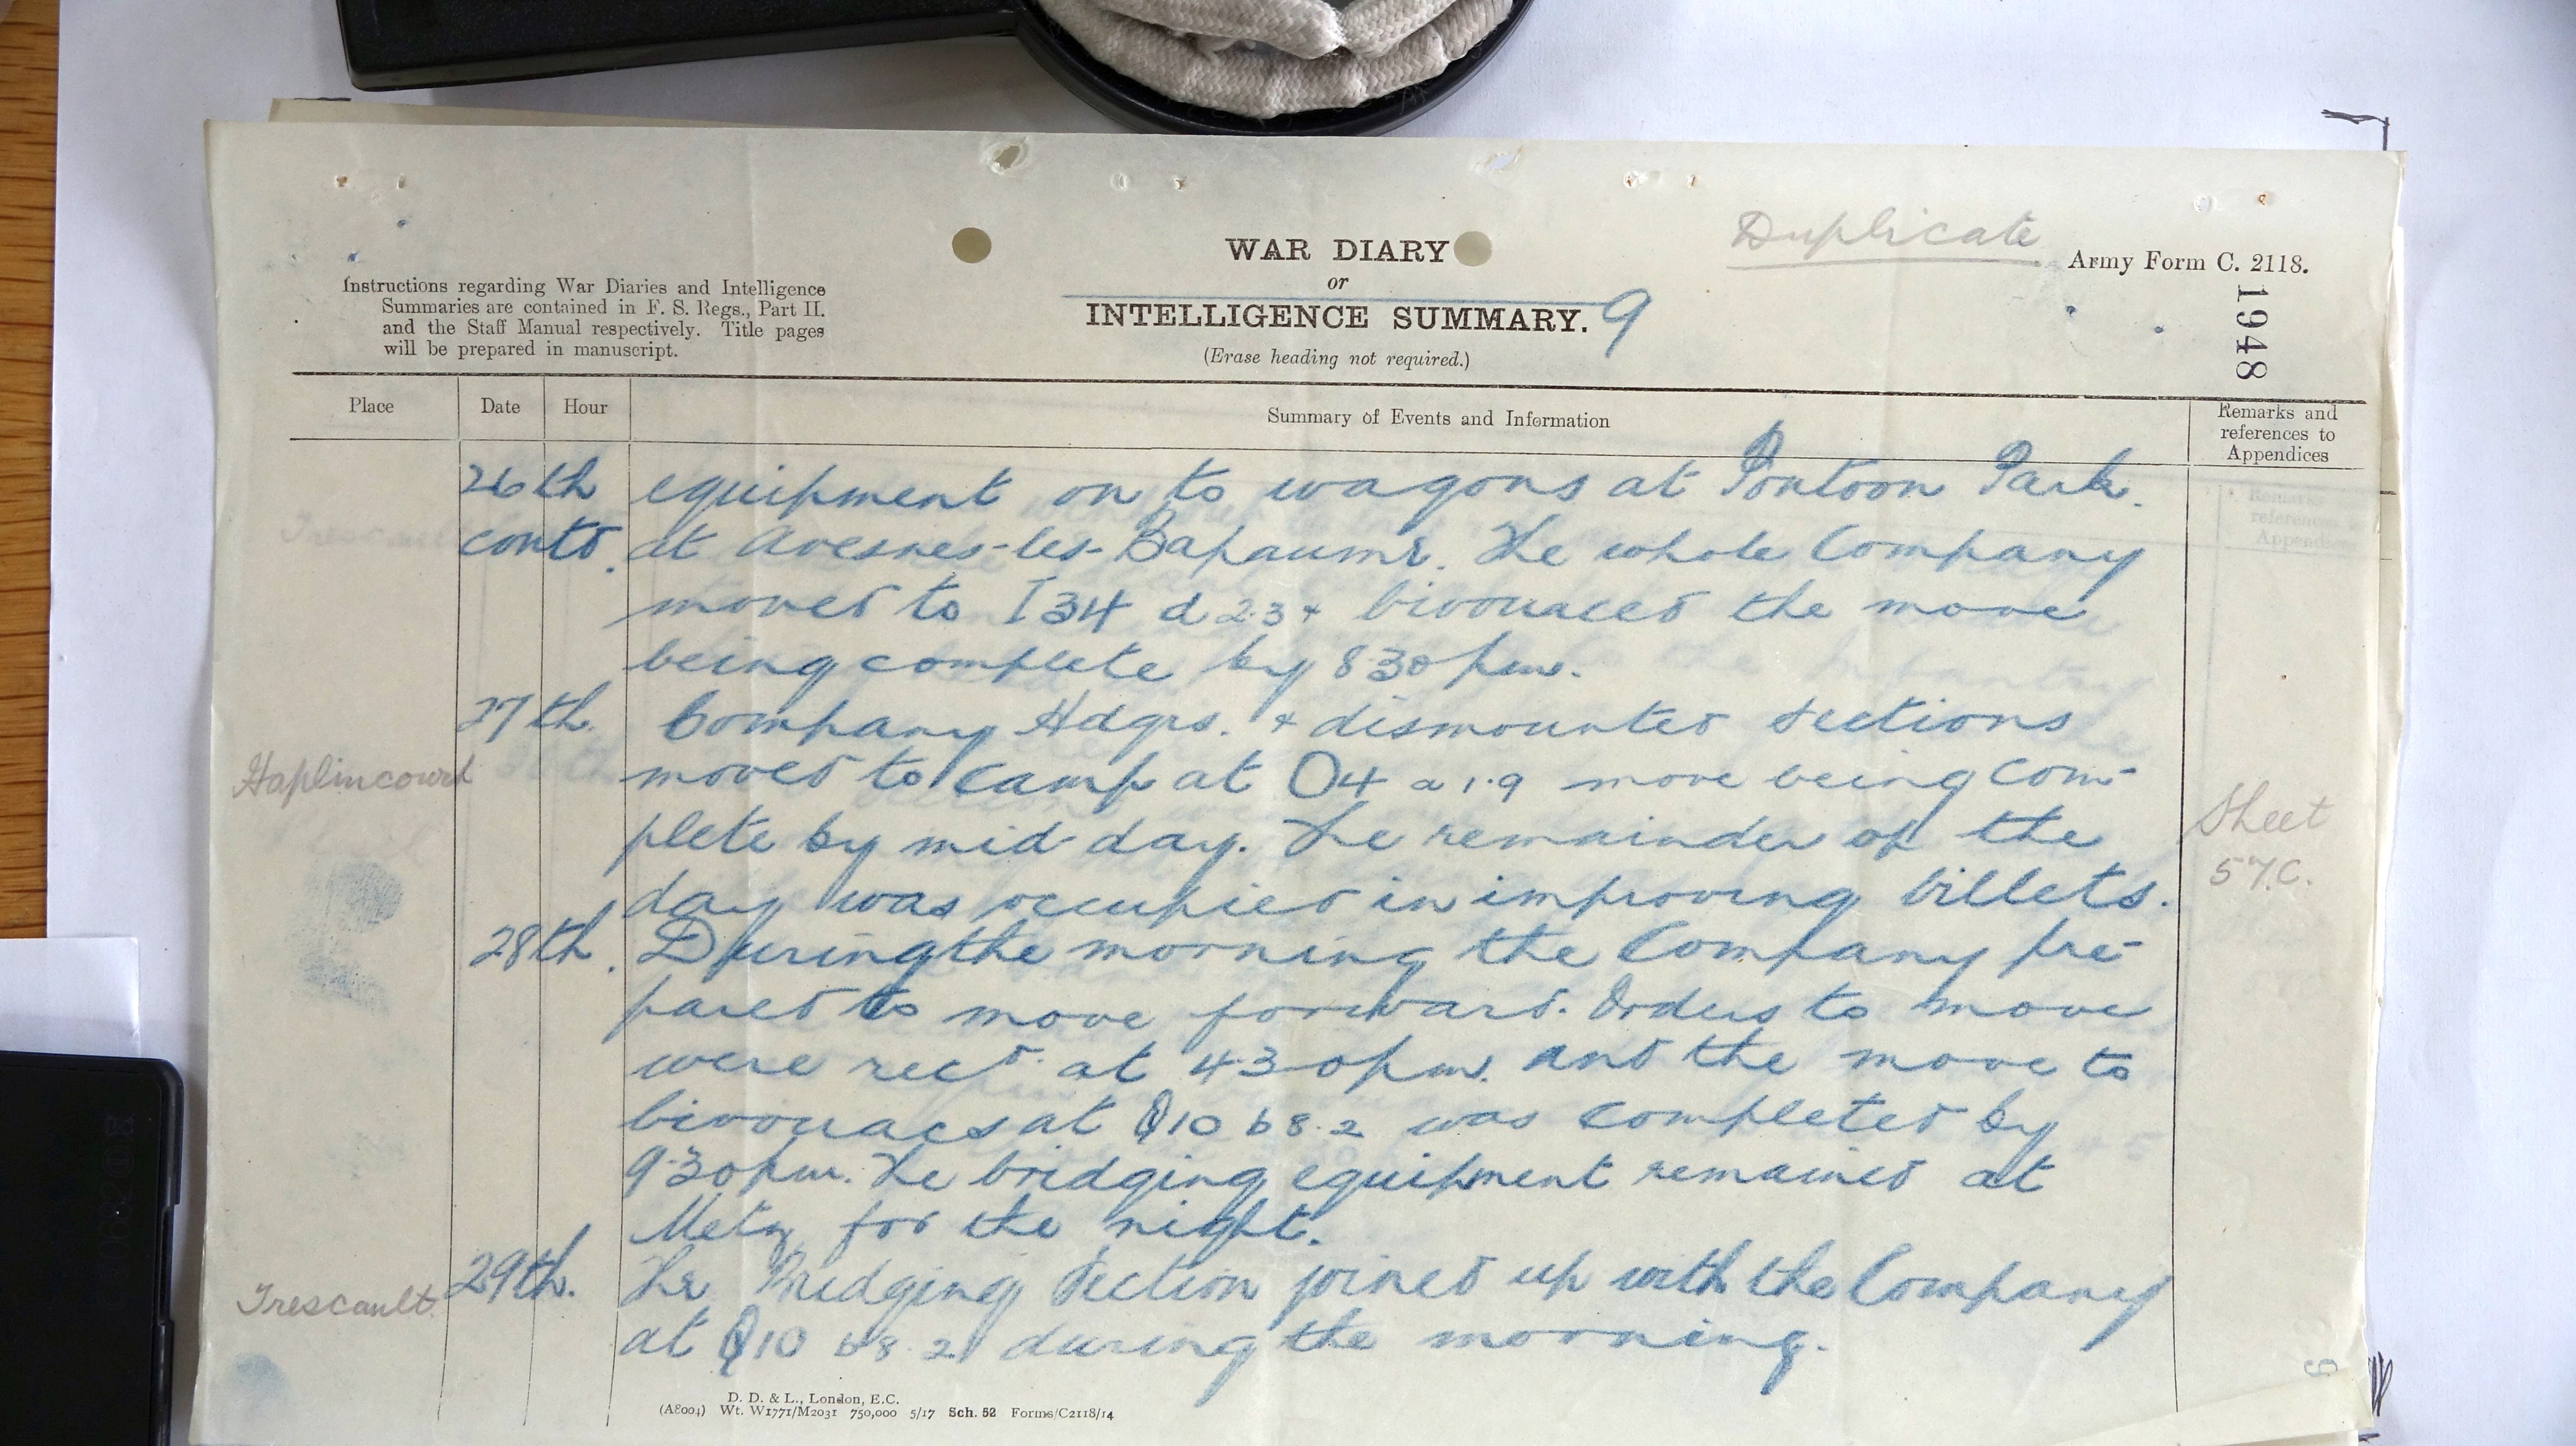 Duplicate
Army Form C. 2118.
1948
WAR DIARY
or
INTELLIGENCE SUMMARY. 9
(Erase heading not required.)
Instructions regarding War Diaries and Intelligence
Summaries are contained in F. S. Regs., Part II.
and the Staff Manual respectively. Title pages
will be prepared in manuscript.
Place Date Hour Summary of Events and Information Remarks and references to Appendices
26th equipment on to wagons at Pontoon Park.
contd. at Avesnes-les-Bapaume. The whole Company
moved to I34 d 2.3 + bivouaced the move
being complete by 830 pm.
27th. Company Hdqrs. + dismounted sections
Haplincourt moved to camp at O4 a 1.9 move being com-
plete by mid-day. The remainder of the
Sheet
57.C.
day was occupied in improving billets.
28th. During the morning the Company pre-
pared to move forward. Orders to move
were recd. at 4.30 pm. and the move to
bivouacs at Q10 b 8.2 was completed by
9.30 pm. The bridging equipment remained at
Metz for the night.
29th. The Bridging Section joined up with the Company
Trescault. at Q10 b 8.2 during the morning.
D. D. & L., London, E.C.
(A8004) Wt. W1771/M2031 750,000 5/17 Sch. 52 Forms/C2118/14